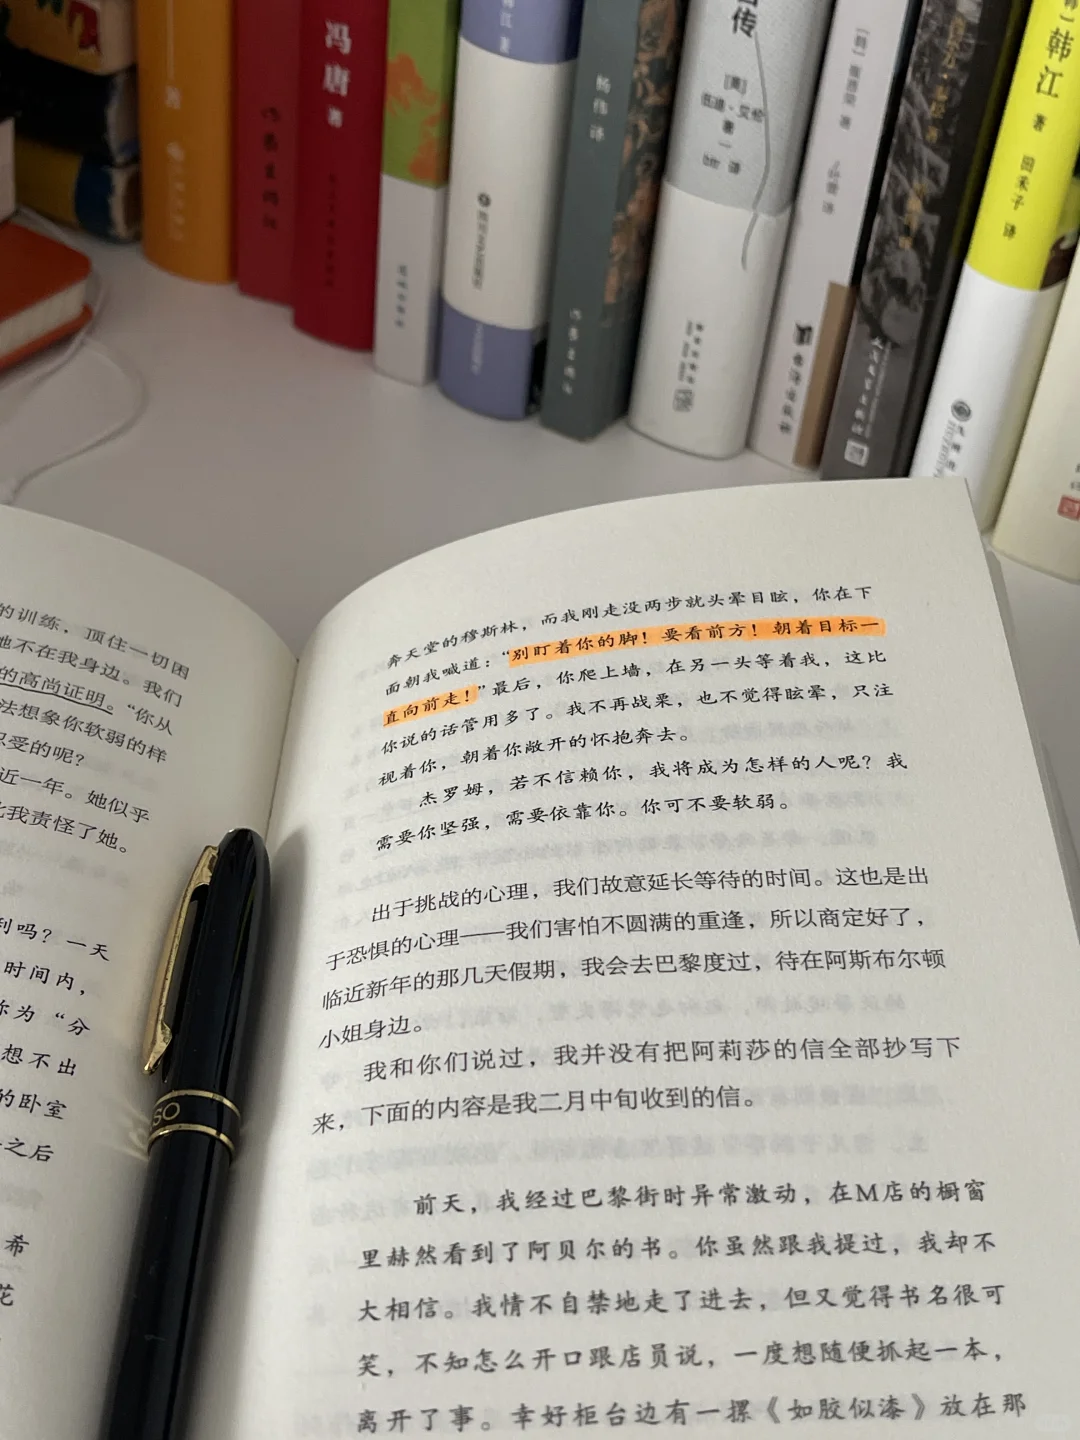 著
冯唐
著
韩江 著
杨伟 译
自传
[英]
伍迪·艾伦
著
译
[韩]
著
译
韩江
著
田禾子
译
的训练，顶住一切困
她不在我身边。我们
的高尚证明。“你从
法想象你软弱的样
忍受的呢？
近一年。她似乎
比我责怪了她。
利吗？一天
时间内，
称为“分
想不出
的卧室
之后
希
花
SO
奔天堂的穆斯林，而我刚走没两步就头晕目眩，你在下
面朝我喊道：“别盯着你的脚！要看前方！朝着目标一
直向前走！”最后，你爬上墙，在另一头等着我，这比
你说的话管用多了。我不再战栗，也不觉得眩晕，只注
视着你，朝着你敞开的怀抱奔去。
杰罗姆，若不信赖你，我将成为怎样的人呢？我
需要你坚强，需要依靠你。你可不要软弱。
出于挑战的心理，我们故意延长等待的时间。这也是出
于恐惧的心理——我们害怕不圆满的重逢，所以商定好了，
临近新年的那几天假期，我会去巴黎度过，待在阿斯布尔顿
小姐身边。
我和你们说过，我并没有把阿莉莎的信全部抄写下
来，下面的内容是我二月中旬收到的信。
前天，我经过巴黎街时异常激动，在M店的橱窗
里赫然看到了阿贝尔的书。你虽然跟我提过，我却不
大相信。我情不自禁地走了进去，但又觉得书名很可
笑，不知怎么开口跟店员说，一度想随便抓起一本，
离开了事。幸好柜台边有一摞《如胶似漆》放在那